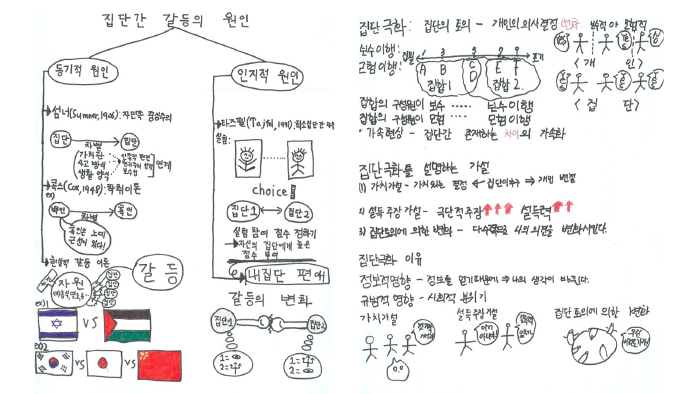 집단간 갈등의 원인
동기적 원인
인지적 원인
섬너(Sumner,1906): 자민족 중심주의
집단 집단
차별
가치관
사고방식
생활양식
연계
콕스(Cox,1948): 착취이론
ex)
백인 흑인
차별
흑인은 노예
근성이 있다!
현실적 갈등 이론
자원
갈등
집단
집단
집단
집단
ex1)
VS
ex2)
VS VS
타즈펠(Tajfel,1971):최소집단
실험:
choice
집단1 집단2
실험 참여 점수 정하기
자신의 집단에게 높은
점수 부여
내집단 편애
갈등의 변화
집단1 집단2
1=
2=
1=
2=
집단극화: 집단의 토의 - 개인의 의사결정 변화 보수적 or 모험적
보수이행:
모험이행:
A B C D E F
집합1 집합2.
집합의 구성원이 보수 ..... 보수이행
집합의 구성원이 모험 ..... 모험이행
가속현상 - 집단간 존재하는 차이의 가속화
< 개 인 >
< 집 단 >
집단극화를 설명하는 가설
1) 가치가설 - 가치있는 집단이 개인 변경
2) 설득주장 가설 - 극단적주장 설득력
3) 집단토의에 의한 변화 - 다수쪽으로 나의 의견을 변화시킨다.
집단극화 이유
정보적영향 - 정보를 얻기때문에 나의 생각이 바뀐다.
규범적 영향 - 사회적 분위기
가치가설 설득주장가설 집단토의에 의한 변화
0.0